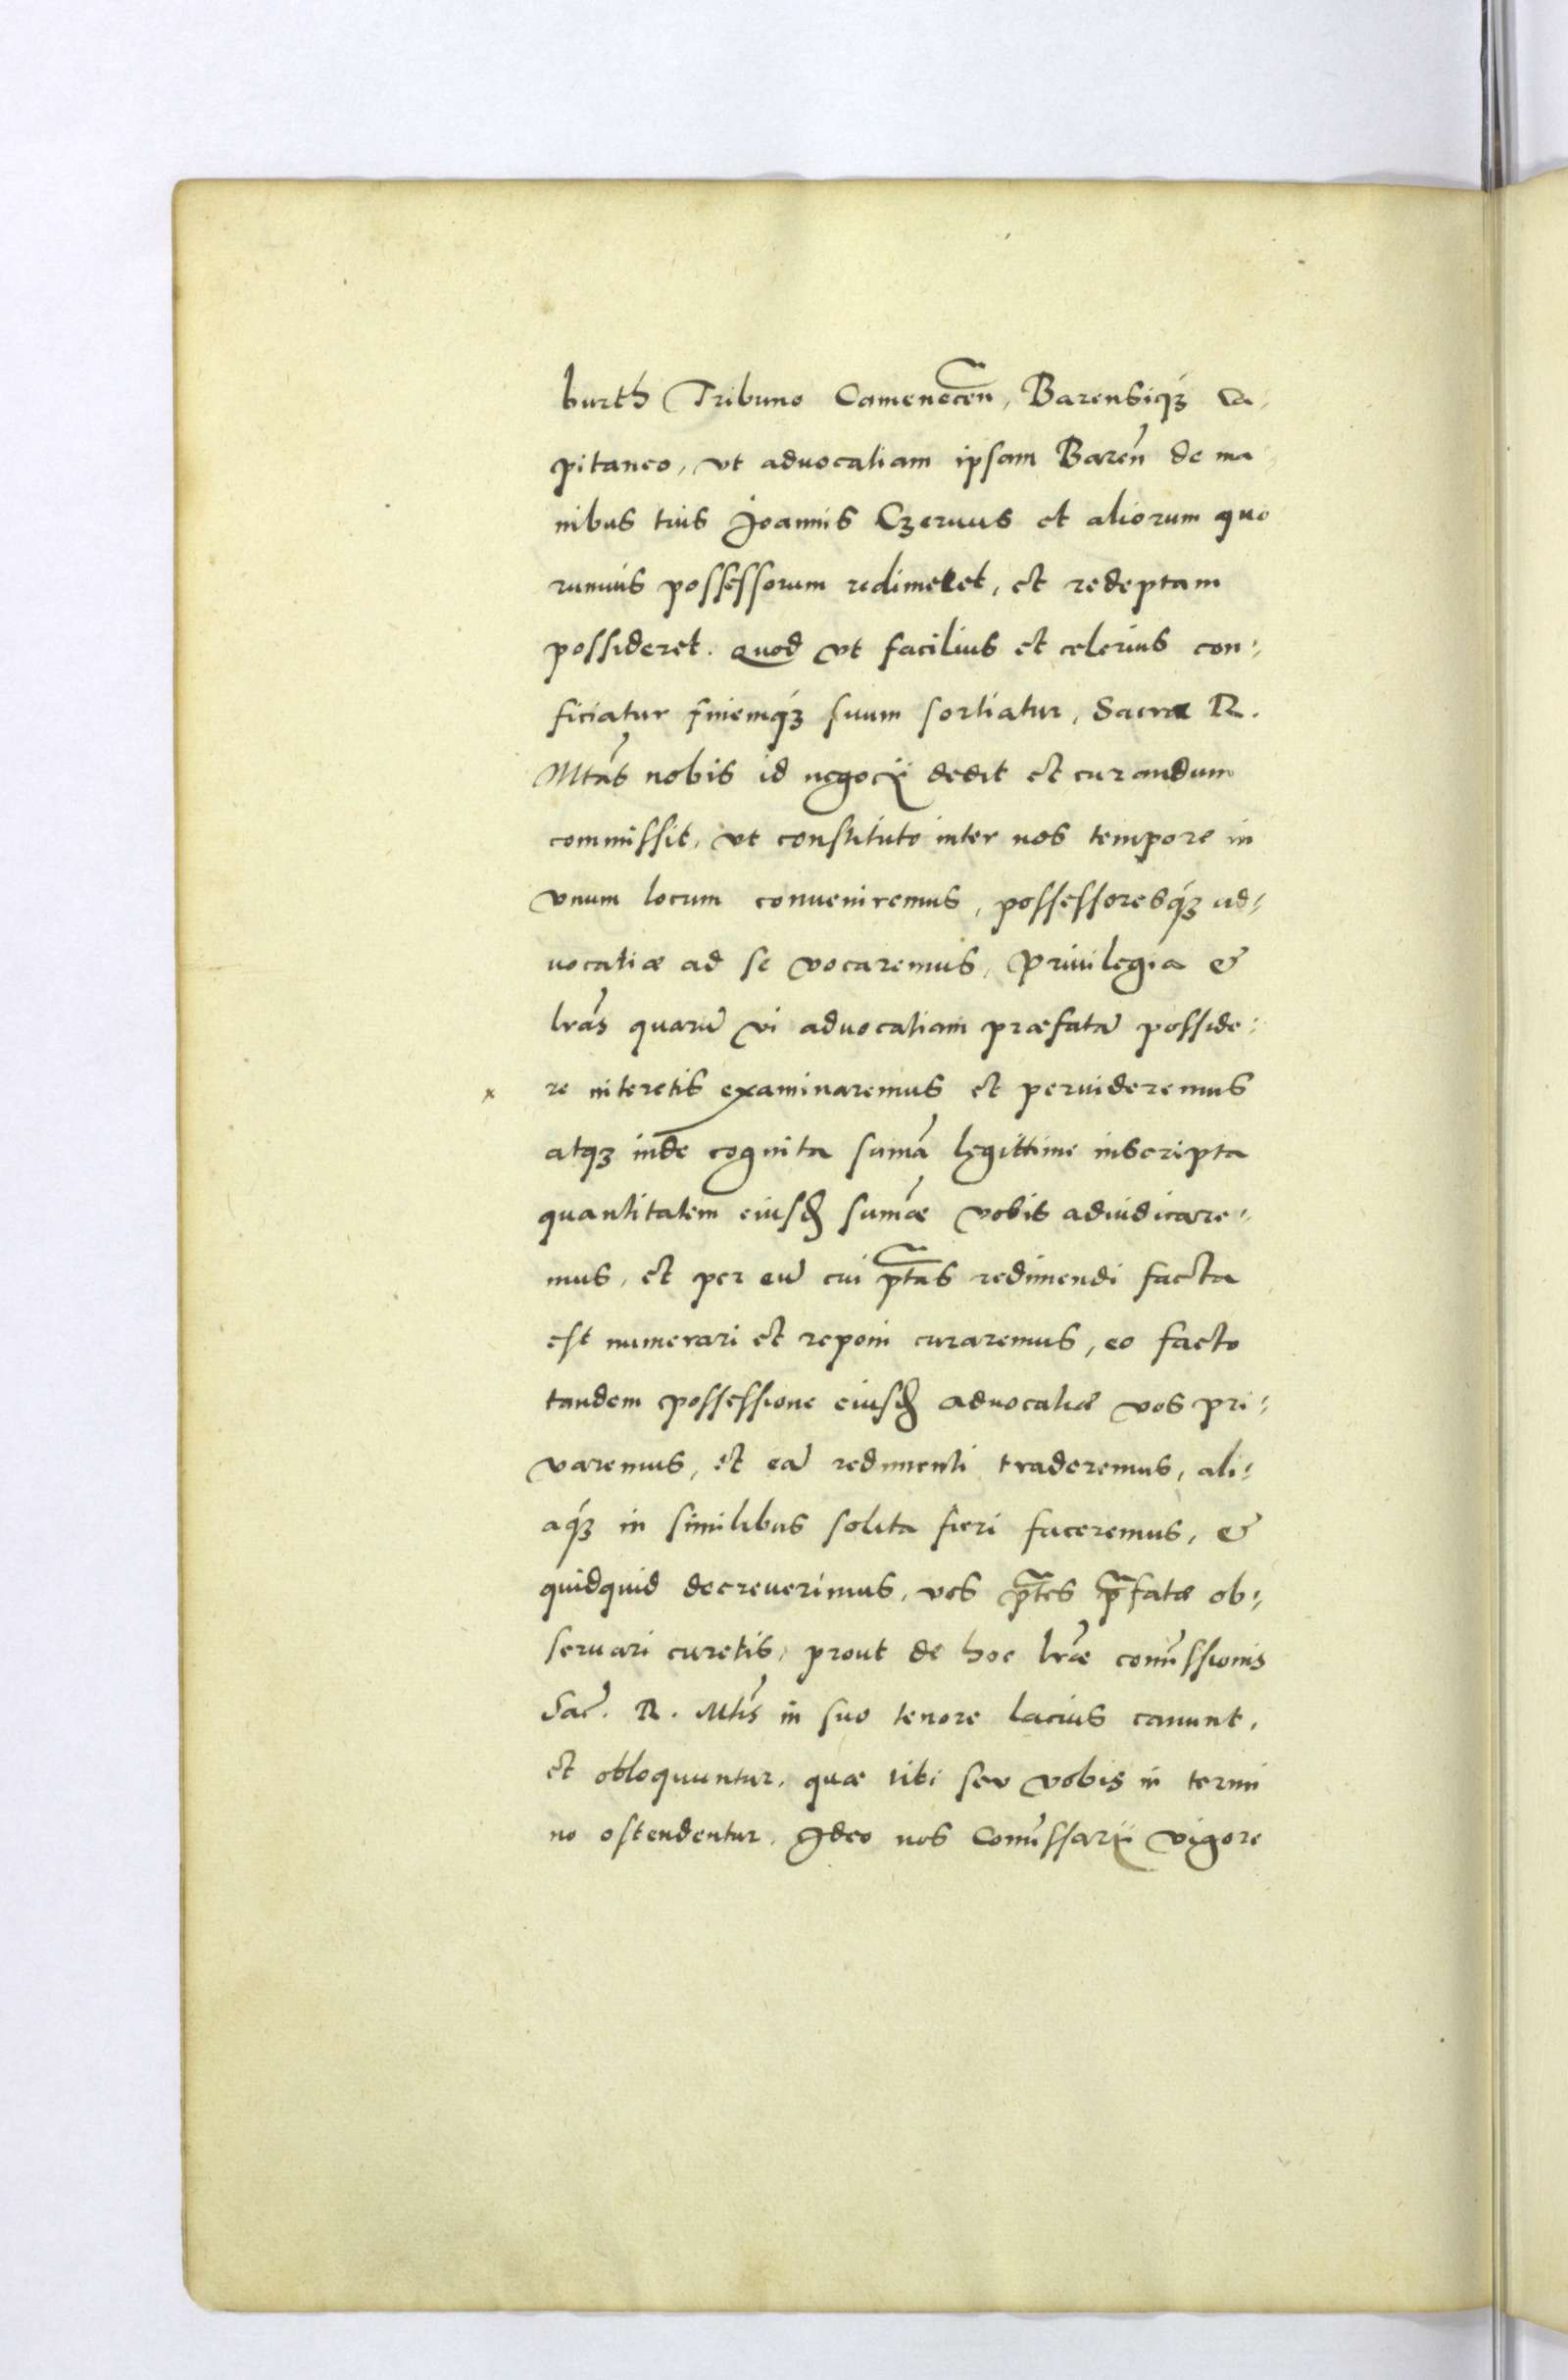 burth Tribuno Camenecen̄, Barensiq́ꝫ Ca-
pitaneo, vt aduocatiam ipsam Baren̄ de ma-
nibus tuis Joannis Czeruus et aliorum quo
rumuis possessorum redimeret, et redeptam
possideret. Quod vt facilius et celerius con-
ficiatur finemq́ꝫ suum sortiatur, Sacra R.
Mtas̄ nobis id negocÿ dedit et curandum
commissit, vt constituto inter nos tempore in
vnum locum conueniremus, possessoresq́ꝫ ad-
uocatiæ ad se vocaremus, Priuilegia &
lrās quarū vi aduocatiam præfatā posside-
x re niteretis examinaremus et peruideremus
atqꝫ inde cognita sum̄a legittime inscripta
quantitatem eiusd̄ sum̄æ vobis adiudicare-
mus, et per eū cui ptās redimendi facta
est numerari et reponi curaremus, eo facto
tandem possessione eiusd̄ aduocatiæ vos pri-
varemus, et eā redimenti traderemus, ali-
aq́ꝫ in similibus solita fieri faceremus, &
quidquid decreuerimus, vos p̄tes p̄fatæ ob-
seruari curetis, prout de hoc lrǣ com̄issionis
Sac̄. R. Mtis̄ in suo tenore lacius canunt,
et obloquuntur, quæ tibi seu vobis in termi
no ostendentur. Ideo nos Com̄issarÿ vigore